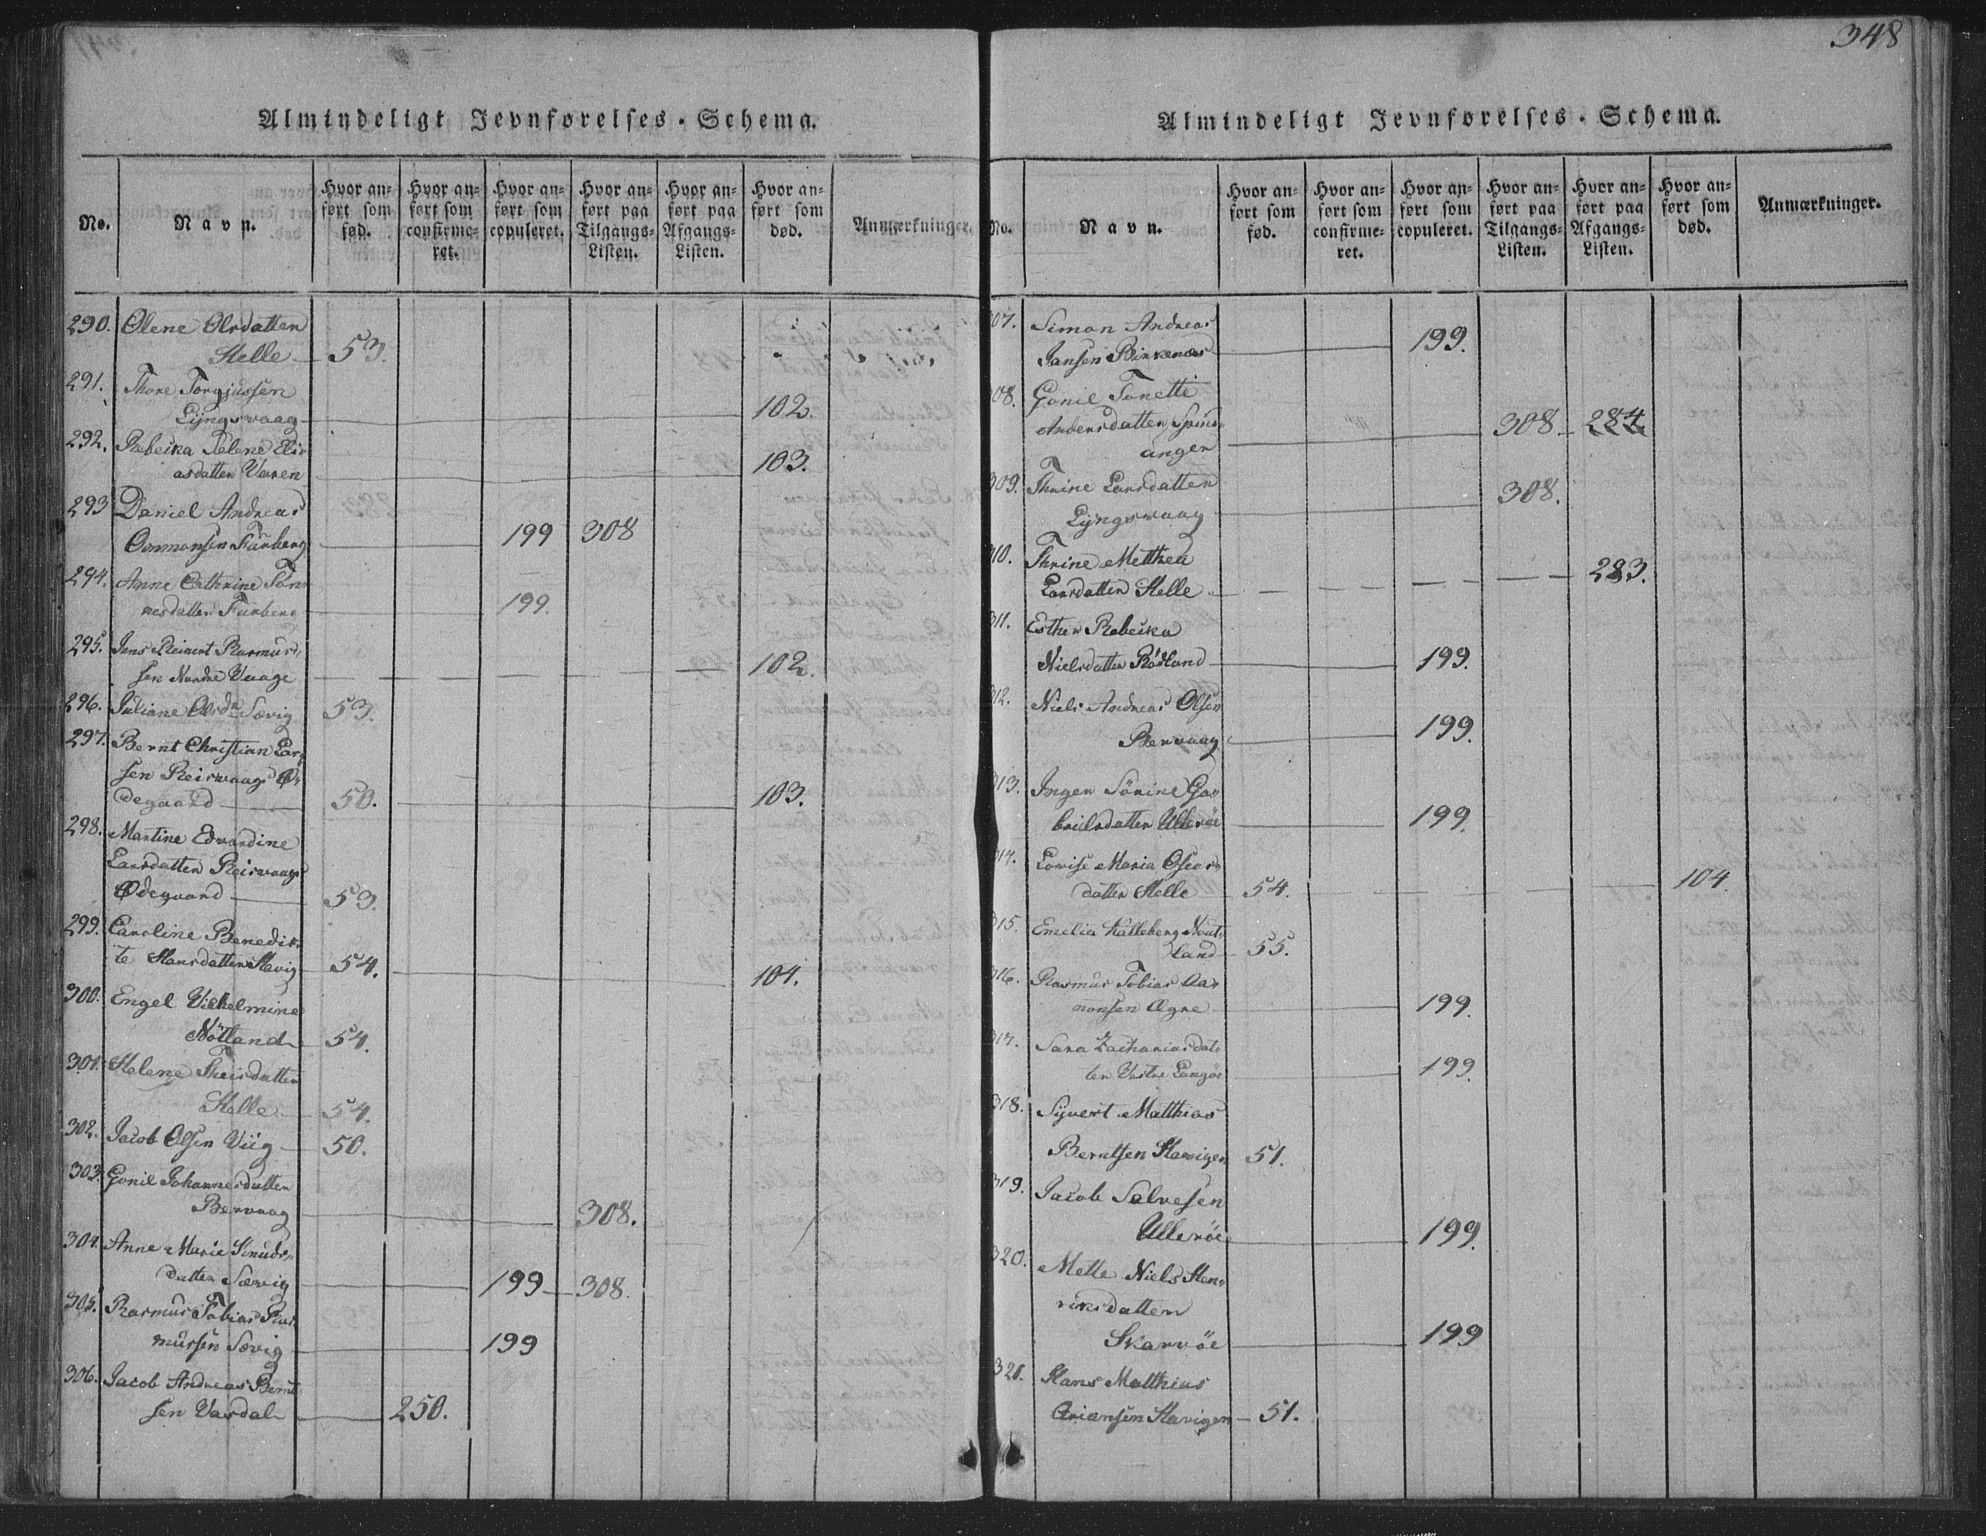 348
Almindeligt Jevnførelses-Schema.
No. Navn. Hvor anført som fød. Hvor anført som confirmeret. Hvor anført som copuleret. Hvor anført paa Tilgangs-Listen. Hvor anført paa Afgangs-Listen. Hvor anført som død. Anmærkninger.
290. Olene Olsdatter
Helle 53.
291. Thore Torgjussen
Lyngsvaag 102.
292. Rebecka Helene Eli-
asdatter Varen 103.
293 Daniel Andreas
Ommonsen Furberg 199 308
294. Anne Cathrine Tøn-
nesdatter Furberg 199.
295. Jens Reinert Rasmus-
sen Nordre Vaage 102.
296. Juliane Olsdr Sævig 53.
297. Bernt Christian Lar-
sen Reisvaags Ø-
degaard 50. 103.
298. Martine Edvardine
Larsdatter Reisvaags
Ødegaard 53.
299. Caroline Benedik-
te Hansdatter Havig 54. 104.
300. Engel Vilhelmine
Nøtland 54.
301. Helene Theisdatter
Helle 54.
302. Jacob Olsen Viig 50.
303. Gonil Johannesdatter
Bervaag 308.
304. Anne Marie Knuds-
datter Sævig 199 308.
305. Rasmus Tobias Ras-
mussen Sævig 199
306. Jacob Andreas Bernt
sen Vasdal 250.
Almindeligt Jevnførelses-Schema.
No. Navn. Hvor anført som fød. Hvor anført som confirmeret. Hvor anført som copuleret. Hvor anført paa Tilgangs-Listen. Hvor anført paa Afgangs-Listen. Hvor anført som død. Anmærkninger.
307. Simon Andreas
Jansen Birkenæs 199.
308. Gonil Tonette
308. 284
anger
309. Thrine Larsdatter
Lyngsvaag 308.
310. Thrine Metthea
Larsdatter Helle 283.
311. Esther Rebecka
Nielsdatter Rødland 199.
312. Niels Andreas Olsen
Bervaag 199.
313. Inger Sørine Ga-
brielsdatter Ullerøe 199.
314. Lovise Maria Oses-
datter Helle 54. 104.
315. Emelia Kalleberg Nøt-
land 55.
316. Rasmus Tobias Aa-
nonsen Øgre 199.
317. Sara Zachariasdat-
ter Vestre Langøe 199.
318. Syvert Matthias
Berntsen Havigen 51.
319. Jacob Salvesen
Ullerøe 199.
320. Mette Niels Hen-
riksdatter
Skarvøe 199
321. Hans Matthias
Ariansen Havigen 51.